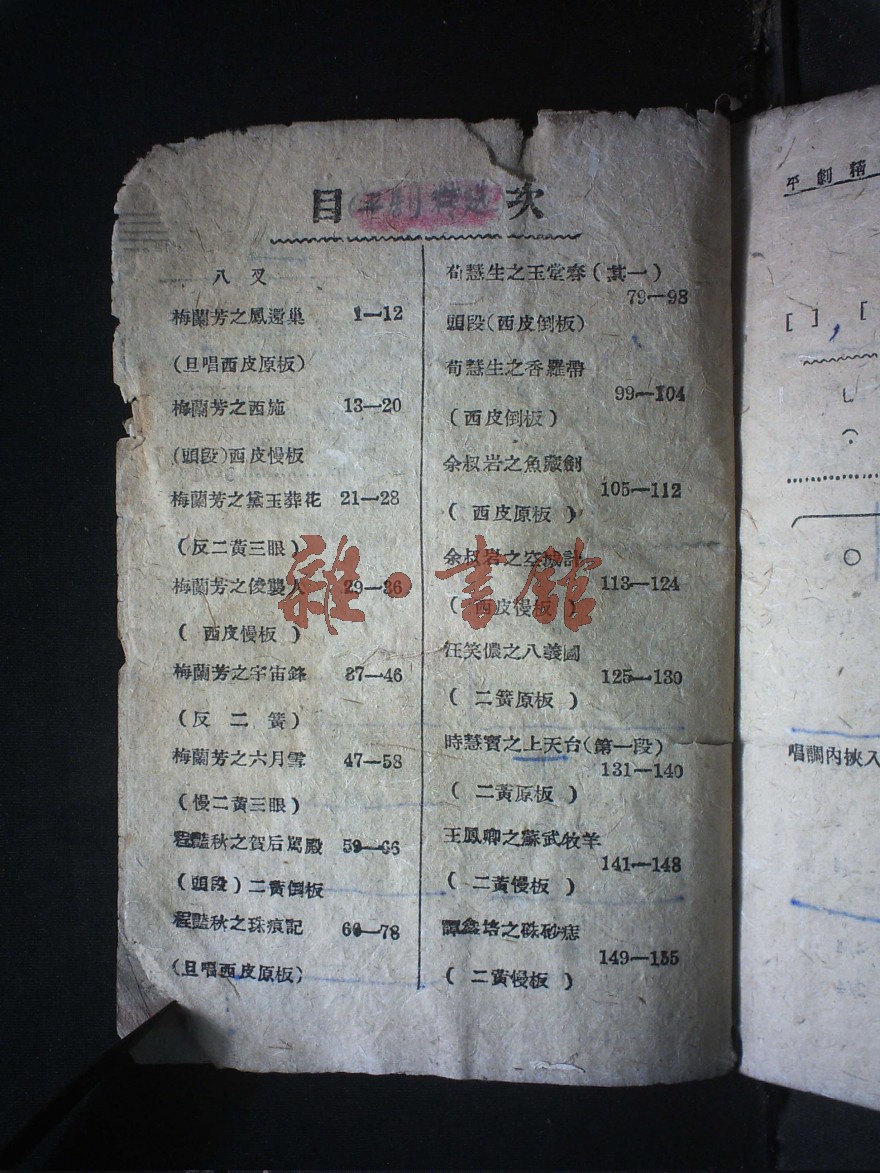 目 次
八叉
梅蘭芳之鳳還巢 1—12
(旦唱西皮原板)
梅蘭芳之西施 13—20
(頭段)西皮慢板
梅蘭芳之黛玉葬花 21—28
(反二黃三眼)
梅蘭芳之俊襲人 29—36
( 西皮慢板 )
梅蘭芳之宇宙鋒 37—46
(反 二 簧)
梅蘭芳之六月雪 47—58
(慢二黃三眼)
程豔秋之賀后罵殿 59—66
(頭段)二黃倒板
程豔秋之珠痕記 66—78
(旦唱西皮原板)
荀慧生之玉堂春(其一)
79—98
頭段(西皮倒板)
荀慧生之香羅帶
99—104
(西皮倒板)
余叔岩之魚藏劍
105—112
( 西皮原板 )
余叔岩之空城計
113—124
( 西皮慢板 )
汪笑儂之八義圖
125—130
( 二簧原板 )
時慧寶之上天台(第一段)
131—140
( 二黃原板 )
王鳳卿之蘇武牧羊
141—148
( 二黃慢板 )
譚鑫培之硃砂痣
149—155
( 二黃慢板 )
平劇精
[ ], [
唱調內挾入
雜·書館